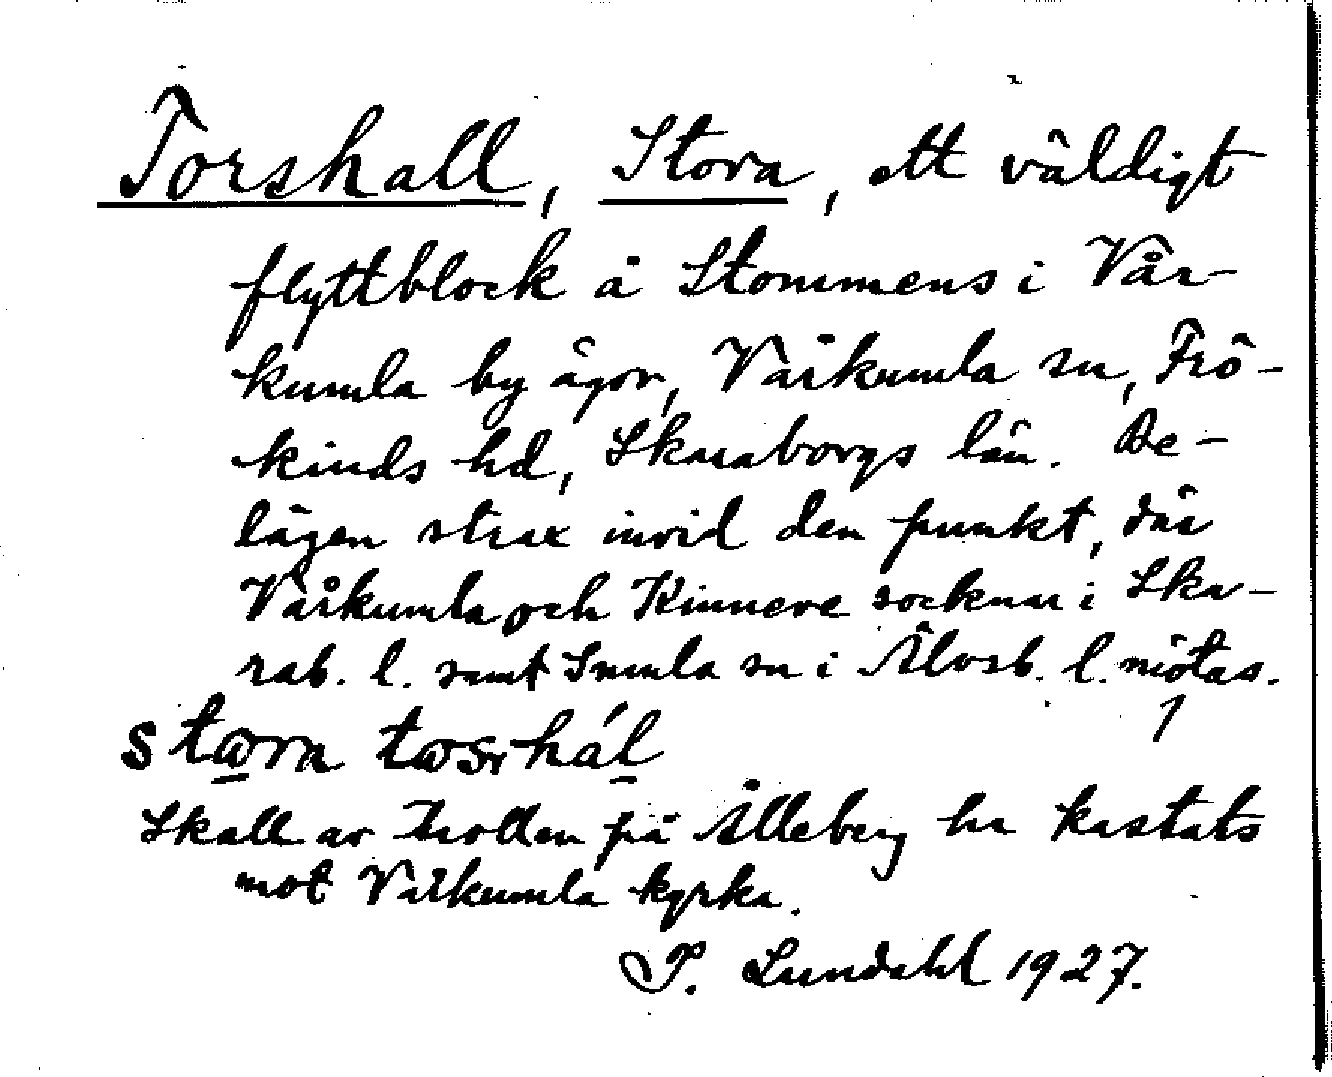 Torshall, Stora, ett väldigt
flyttblock å Stommens i Vår-
kumla by ägor, Vårkumla sn, Frö-
kinds hd, Skaraborgs län. Be-
lägen strax invid den punkt, där
Vårkumla och Kinneve socknar i Ska-
rab. l. samt Smula sn i Älvsb. l. mötas.
stora
Skall av trollen på Ålleberg ha kastats
mot Vårkumla kyrka.
P. Lundahl 1927.